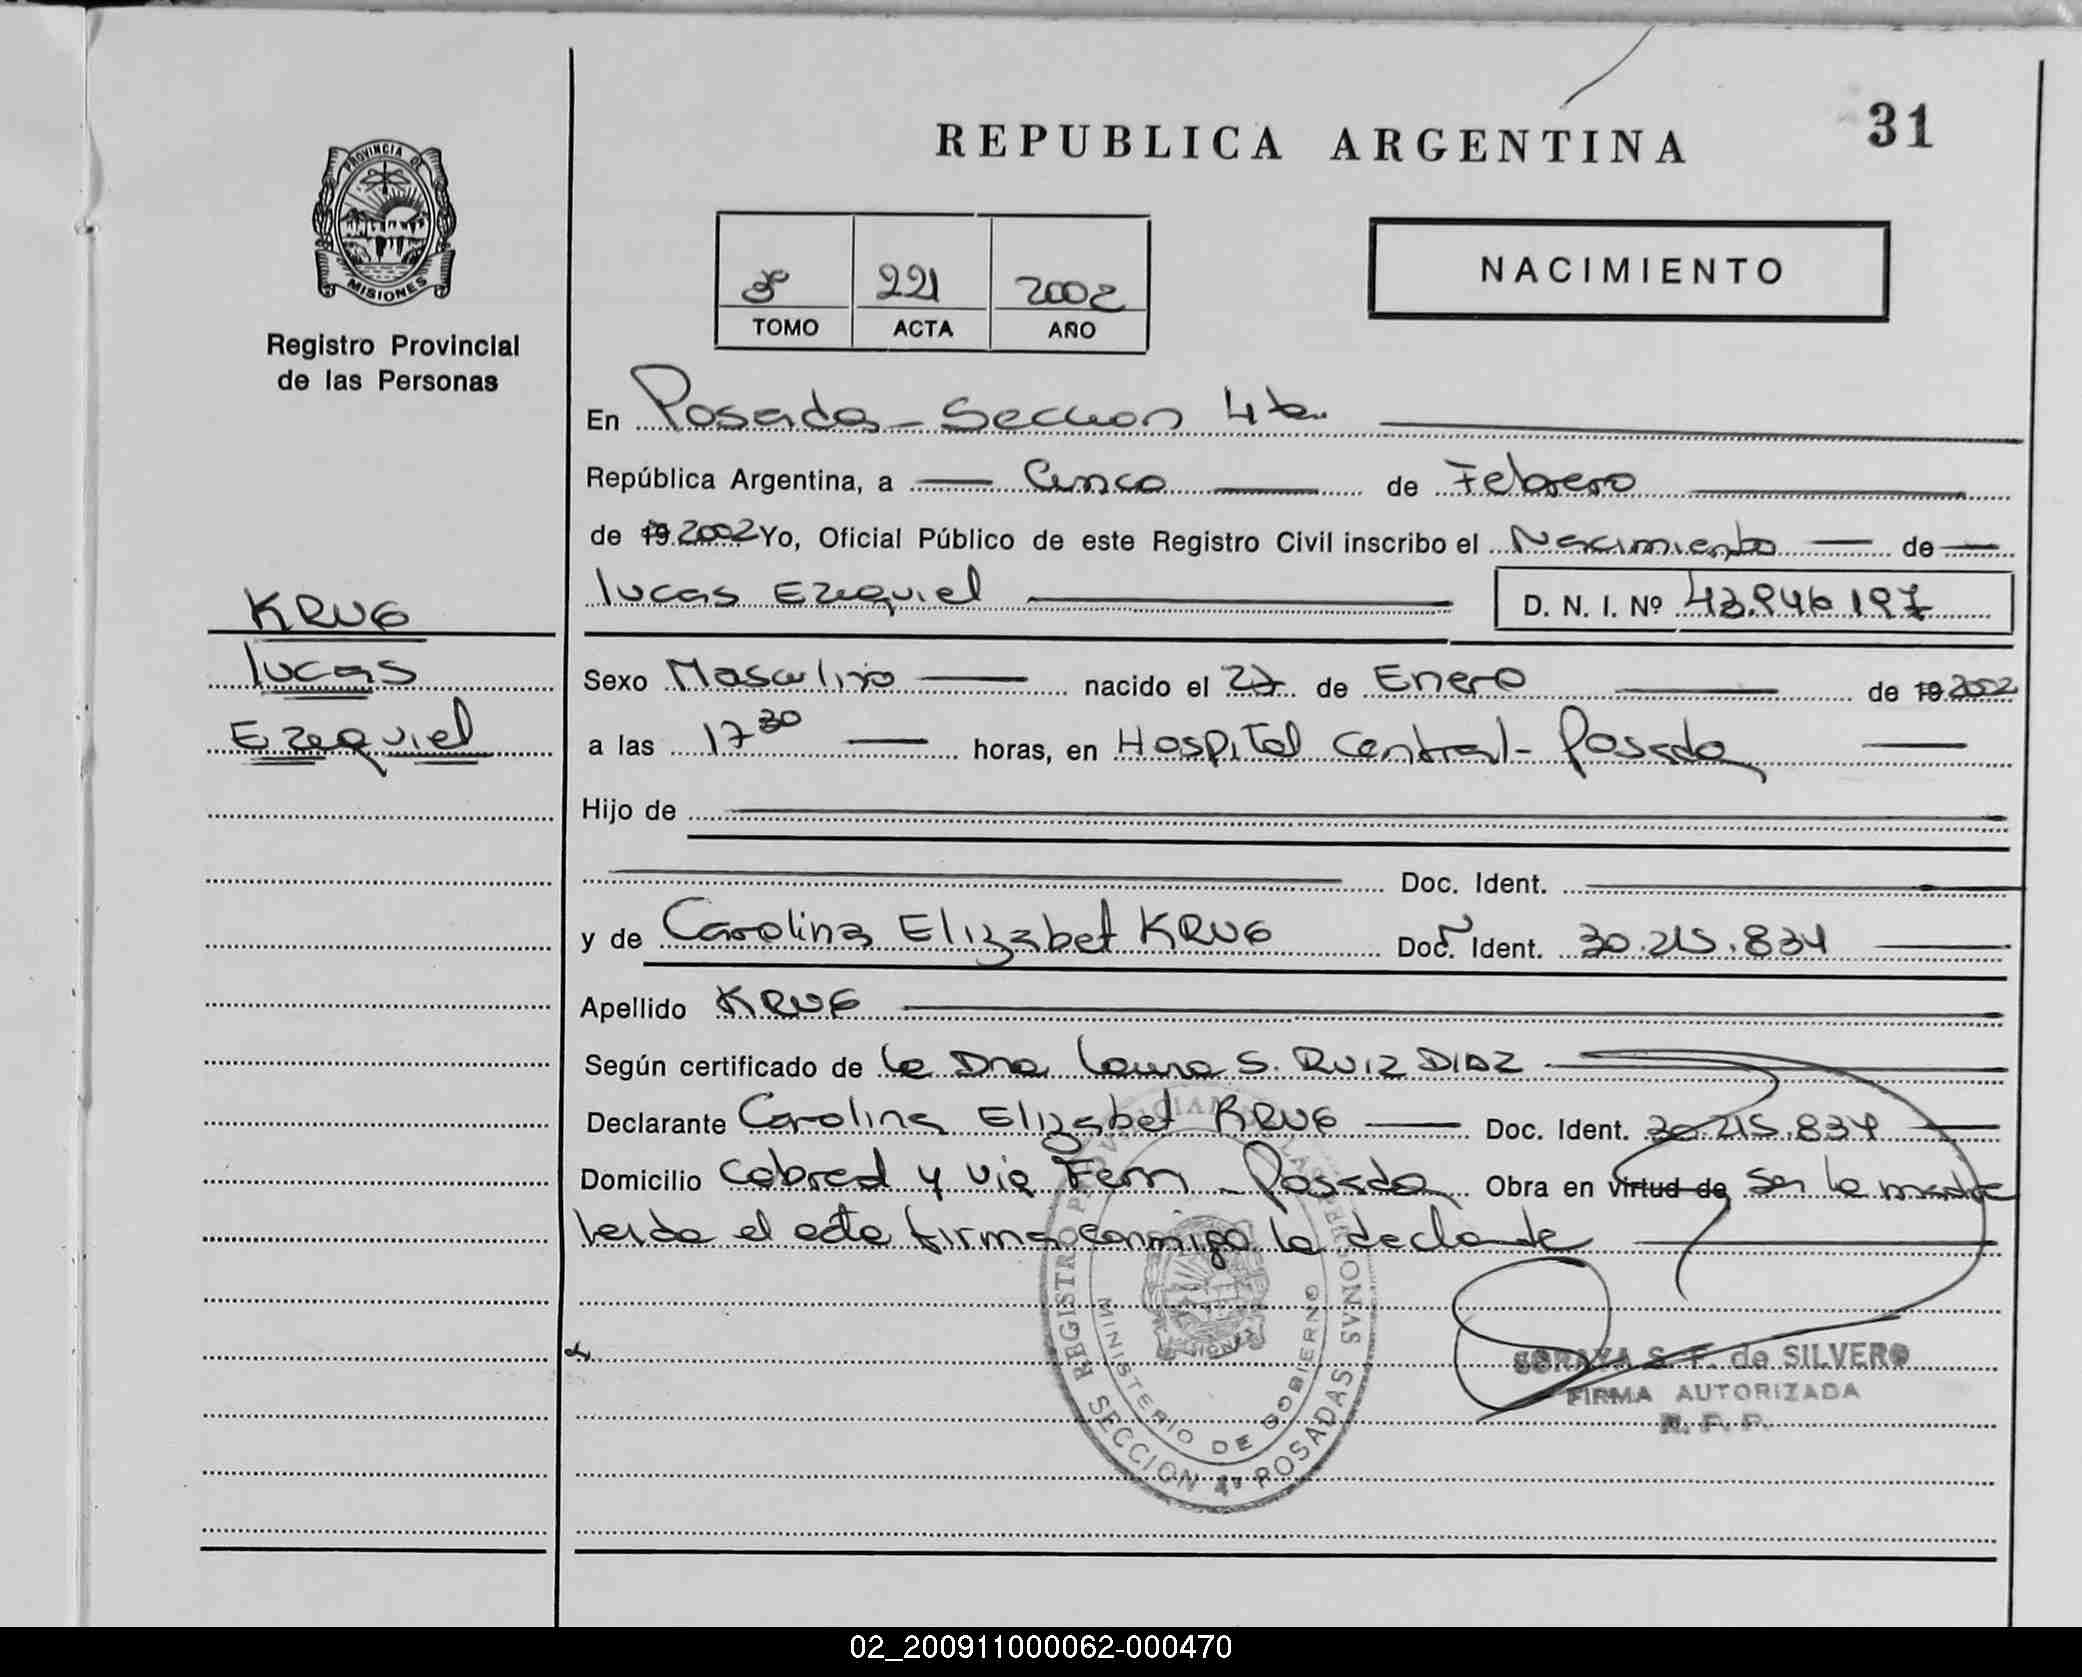 REPUBLICA ARGENTINA
31
PROVINCIA DE
MISIONES
Registro Provincial
de las Personas
3º 221 2002
TOMO ACTA AÑO
NACIMIENTO
En Posadas - Seccion 4ta.
República Argentina, a Cinco de Febrero
de 19 2002 Yo, Oficial Público de este Registro Civil inscribo el Nacimiento de
Lucas Ezequiel D. N. I. Nº
KRUG
Lucas
Ezequiel
Sexo Masculino nacido el 27 de Enero de 19 2002
a las 17 30 horas, en Hospital Central - Posadas
Hijo de
Doc. Ident.
y de Carolina Elizabet KRUG Doc. Ident. 30.215.834
Apellido KRUG
Según certificado de la Dra Laura S. RUIZ DIAZ
Declarante Carolina Elizabet KRUG Doc. Ident. 30.215.834
Domicilio Cabred y via Ferr - Posadas Obra en virtud de Ser la madre
leida el acta firma conmigo la declarante
REGISTRO PROVINCIAL DE LAS PERSONAS
MINISTERIO DE GOBIERNO
SECCION 4ª POSADAS
SORAYA S. F. de SILVERO
FIRMA AUTORIZADA
R. P. P.
02_200911000062-000470